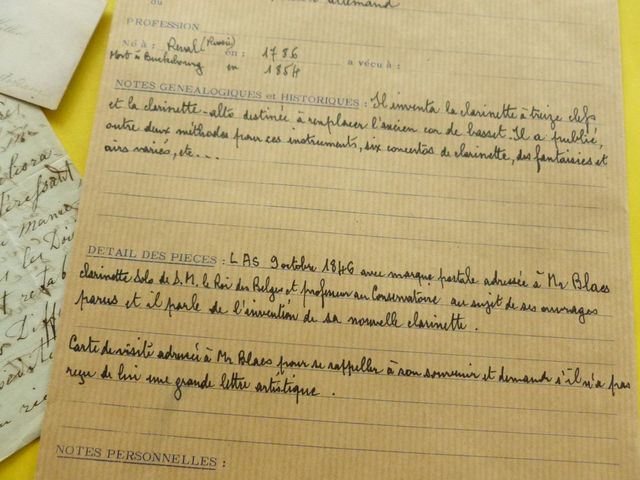 ou
allemand
PROFESSION
Né à : Reval (Russie) en : 1786
Mort à Buckebourg en 1854 a vécu à :
NOTES GENEALOGIQUES et HISTORIQUES : Il inventa la clarinette à treize clefs
et la clarinette-alto destinée à remplacer l'ancien cor de basset. Il a publié,
outre deux méthodes pour ces instruments, six concertos de clarinette, des fantaisies et
airs variés, etc...
DETAIL DES PIECES : LAS 9 octobre 1846 avec marque postale adressée à Mr Blaes
clarinette Solo de S.M. le Roi des Belges et professeur au Conservatoire au sujet de ses ouvrages
parus et il parle de l'invention de sa nouvelle clarinette.
Carte de visite adressée à Mr Blaes pour se rappeller à son souvenir et demande s'il n'a pas
reçu de lui une grande lettre artistique.
NOTES PERSONNELLES :